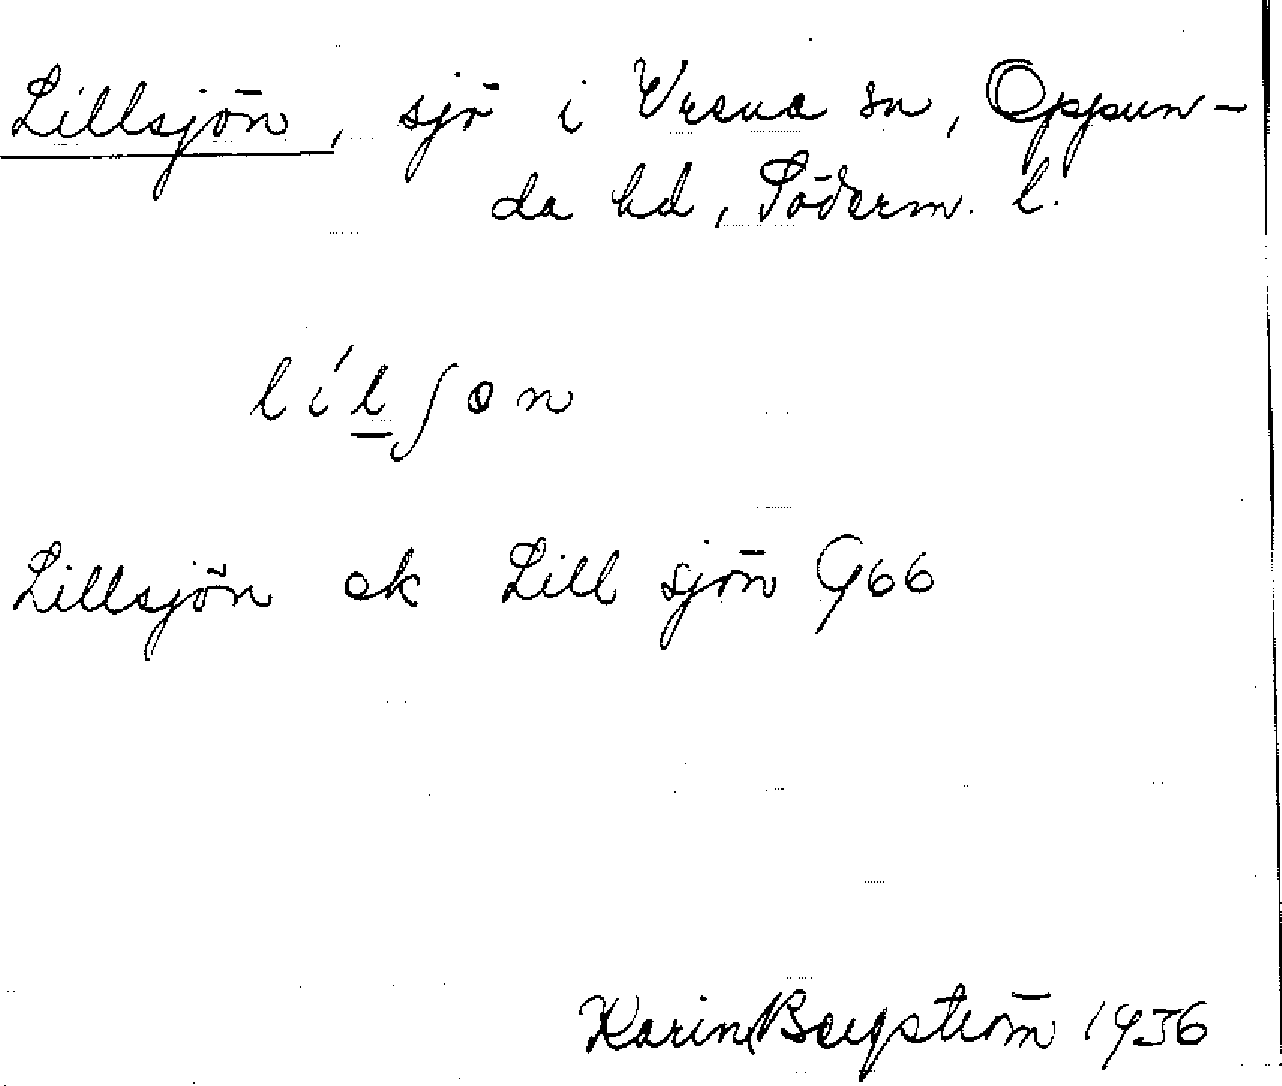 Lillsjön, sjö i Vrena sn, Oppun-
da hd, Söderm. l.
lílʃɵn
Lillsjön ek Lill sjön G66
Karin Bergström 1936